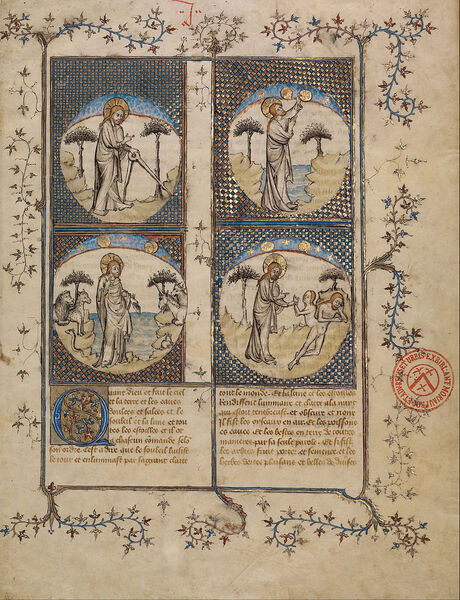 Quant dieu et fait le ciel
la terre et les eaues
doulces et salees et le
souleil la lune et tou
tes les estoilles et il ot
a chascun comande selo
son ordre. Cest a dire que le souleil luisist
le iour et enluminast par sa grant clarte
tout le monde. et la lune et les estoiles
rendissent lumiere et clarte a la nuyt
qui estoit tenebreuse et obscure et noire
Il fist les oyseaux en air. et les poissons
es eaues et les bestes en terre de toutes
manieres par sa seule parole. Et si fist
les arbres fruit porter et semence et les
herbes vertes plaisans et belles de